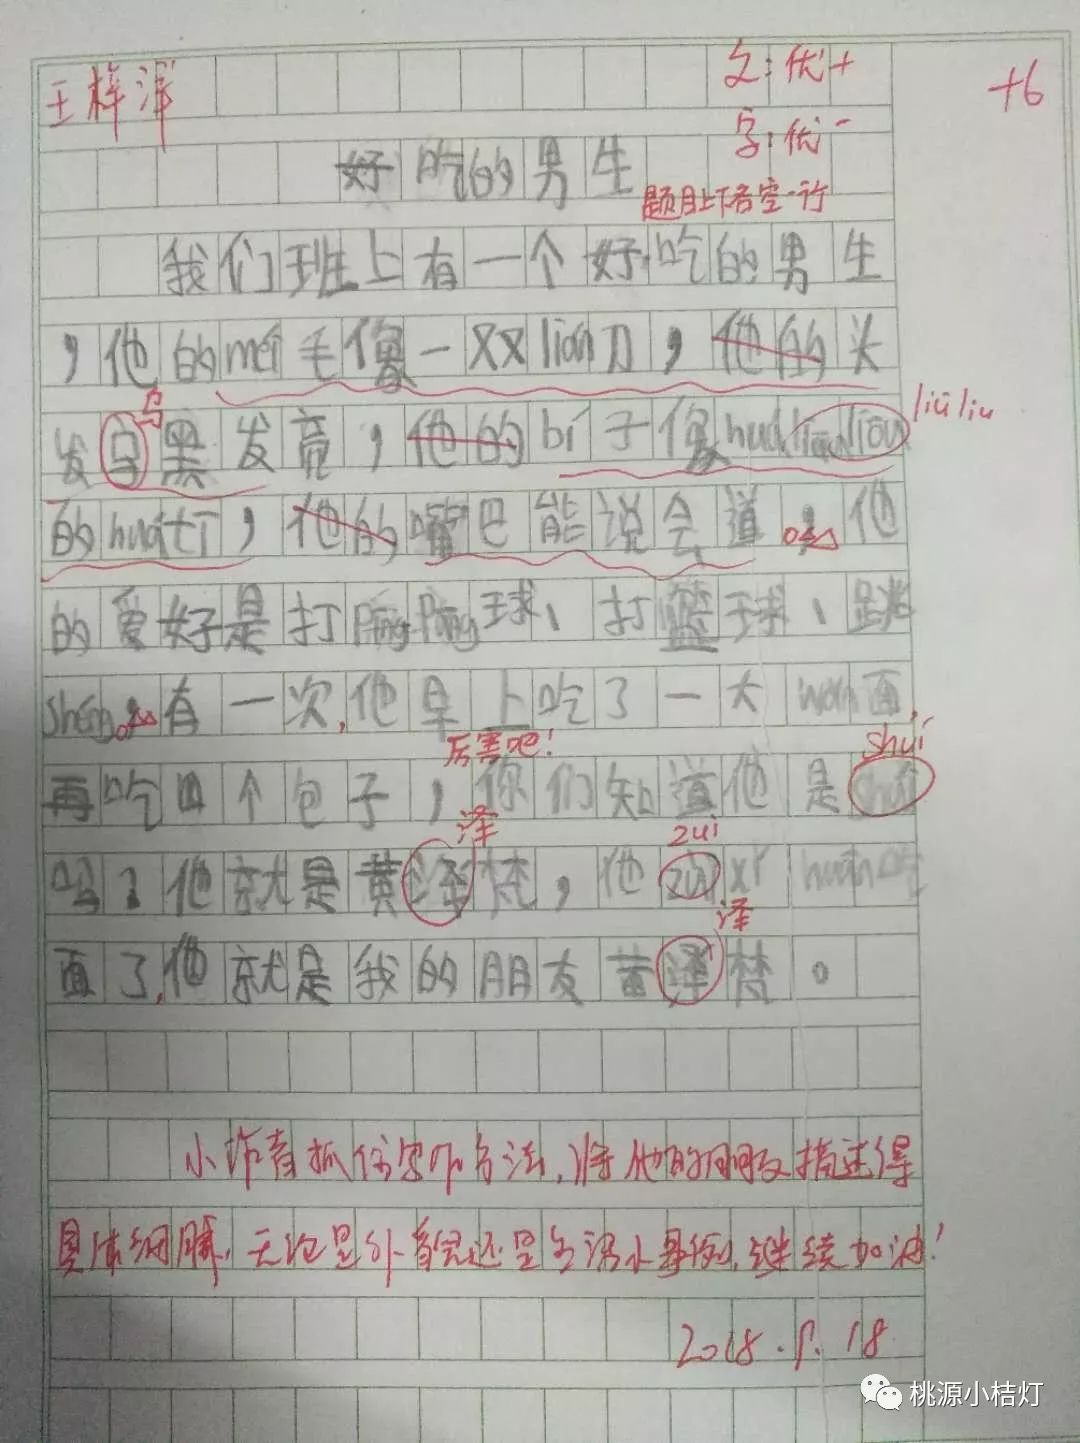 王梓洋
文:优+
+6
字:优-
好吃的男生
题目上下各空一行
我们班上有一个好吃的男生
,他的méi毛像一双lián刀,他的头
乌
发乌黑发亮,他的bí子像huá liou liou
liū liu
的huá tī,他的嘴巴能说会道,他
的爱好是打Pīng Pāng球、打篮球、跳
shéng。有一次,他早上吃了一大wǎn面,
厉害吧!
shuí
再吃四个包子,你们知道他是
泽
zuì
吗?他就是黄泽梵,他 xǐ huān吃
泽
面了,他就是我的朋友黄泽梵。
小作者抓住写作方法,将他的朋友描述得
具体细腻,无论是外貌还是生活小事例,继续加油!
2018.9.18
桃源小桔灯